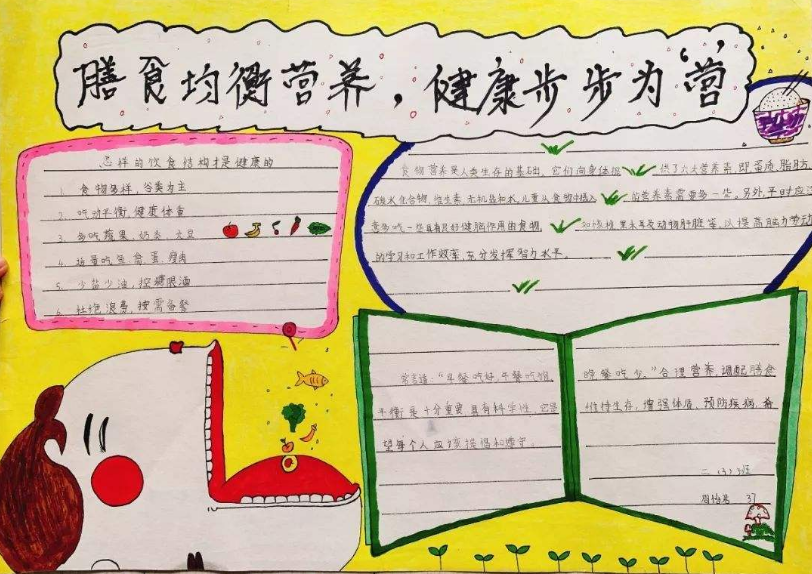 膳食均衡营养，健康步步为“营”
怎样的饮食结构才是健康的
1. 食物多样，谷类为主
2. 吃动平衡，健康体重
3. 多吃蔬果、奶类、大豆
4. 适量吃鱼、禽、蛋、瘦肉
5. 少盐少油，控糖限酒
6. 杜绝浪费，按需备餐
食物营养是人类生存的基础，它们向身体提供了六大营养素，即蛋白质、脂肪、
碳水化合物、维生素、无机盐和水，儿童从食物中摄入的营养素需要多一些。另外，平时应注
意多吃一些具有良好健脑作用的食物，
以提高脑力劳动
的学习和工作效率，充分发挥智力水平。
常言道：“早餐吃好，午餐吃饱，
平衡是十分重要，具有科学性，它
望每个人应该提倡和遵守。
晚餐吃少。”合理营养，调配膳食
维持生存，增强体质，预防疾病，希
二（3）班
37